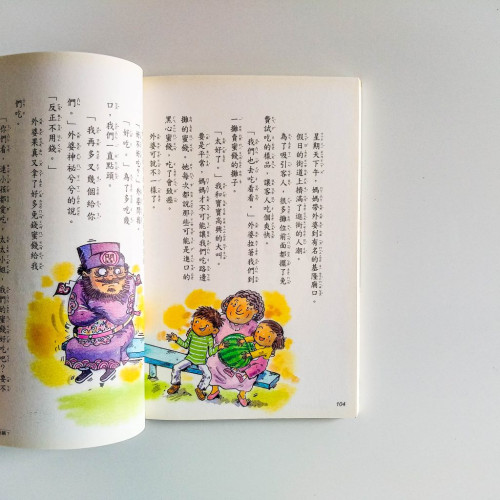 星期天下午，媽媽帶外婆到有名的基隆廟口。
假日的街道上擠滿了逛街的人潮。
為了吸引客人，很多攤位前面都擺了免
費試吃的樣品，讓客人吃個爽快。
「我們也去吃看看。」外婆拉著我們到
一攤賣蜜餞的攤子。
「太好了！」我和寶寶高興的大叫。
要是平常，媽媽才不可能讓我們吃路邊
攤的蜜餞，她每次都說那些可能是進口的
黑心蜜餞，吃了會致癌。
外婆可就不一樣
「好吃，
口，我們一直點頭。
「我再多叉幾個給你
們。」外婆神祕兮兮的說。
「反正不用錢。」
外婆果真又拿了好多免錢蜜餞給我
們吃。
104